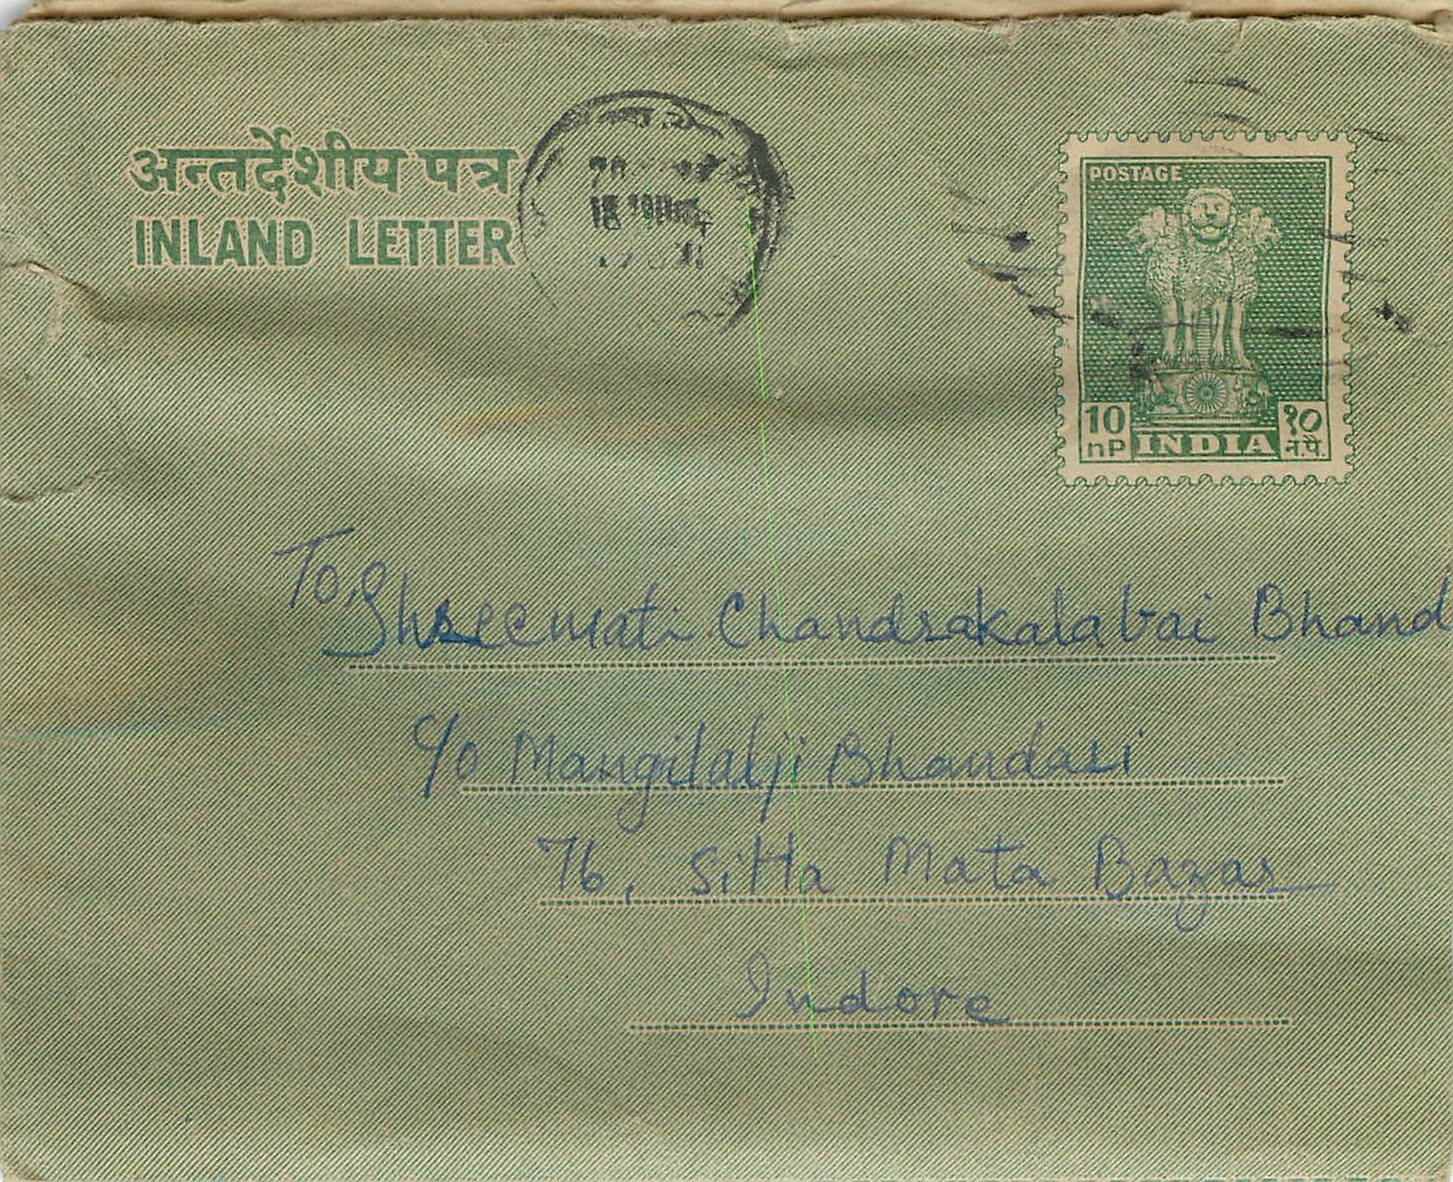 अन्तर्देशीय पत्र
INLAND LETTER
POSTAGE
10 १०
nP INDIA न.पै.
To, Shreemati Chandrakalabai Bhand
C/o Mangilalji Bhandari
76, Sitla Mata Bazar
Indore